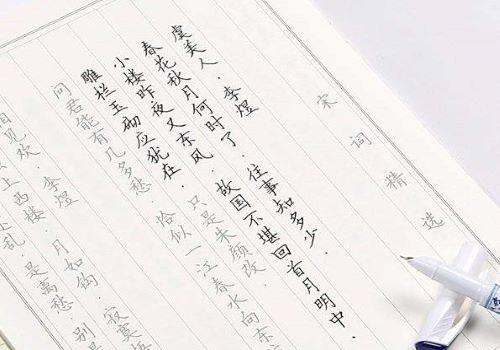 宋词精选
虞美人·李煜.
春花秋月何时了.往事知多少.
小楼昨夜又东风.故国不堪回首月明中.
雕栏玉砌应犹在 只是朱颜改.
问君能有几多愁 恰似一江春水向东
见欢.李煜
上西楼.月如钩.寂寞
乱.是离愁.别是